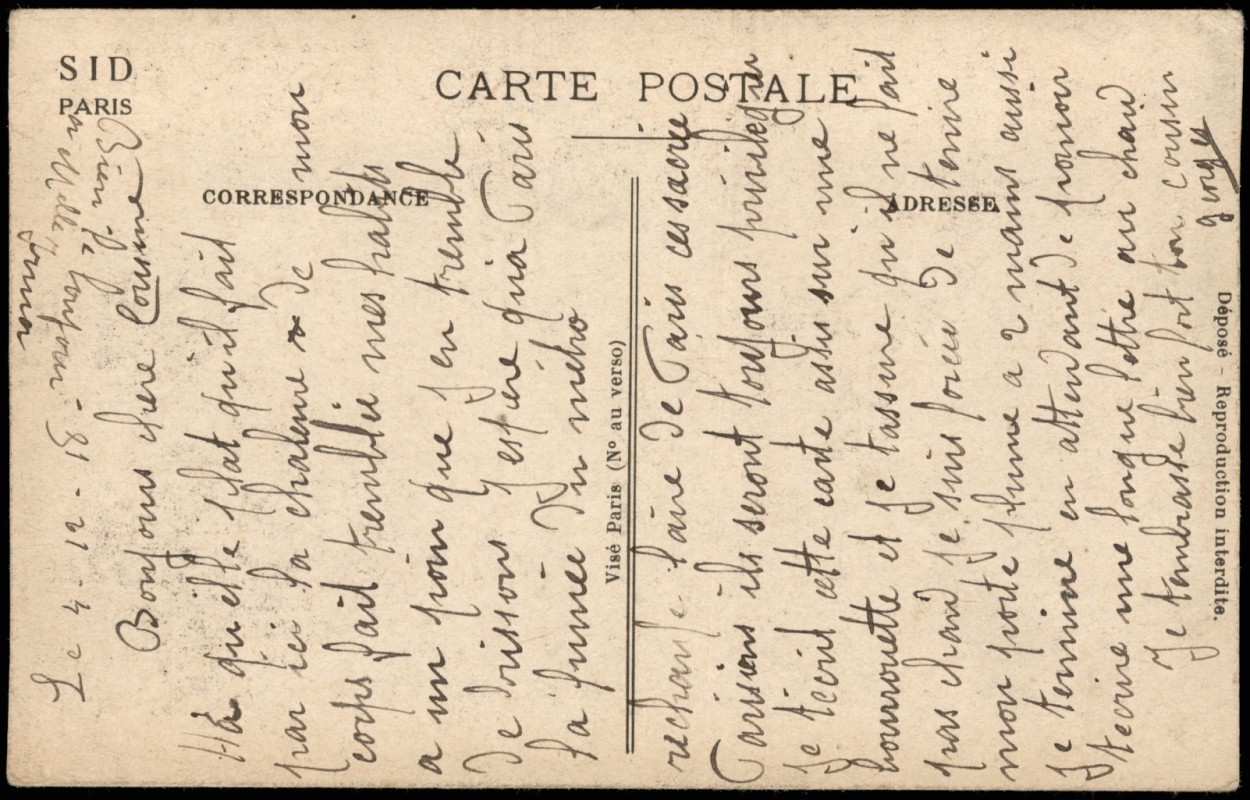 SID
PARIS
CARTE POSTALE
CORRESPONDANCE
ADRESSE
Visé Paris (N° au verso)
Déposé - Reproduction interdite.
Le 4 - 12 - 31 -
Bien
toujour
Bonjour chere Cousine
qu'elle flat qu'il fait
par ici la chaleure de mon
corps fait tremblée mes habits
a un poin que j'en tremble
de frissons J'espère qu'a Paris
la fumée du métro
rechaufe l'aire de Paris ces sacré
Parisiens ils seront toujours
Je técrid cette carte assis sur une
et je t'assure qu'il ne fait
pas chaud je suis forcée de tenire
mon porte plume a 2 mains aussi
Je termine en attendant de pouvoir
tecrire une longue lettre au chaud
Je tembrasse bien fort ton cousin